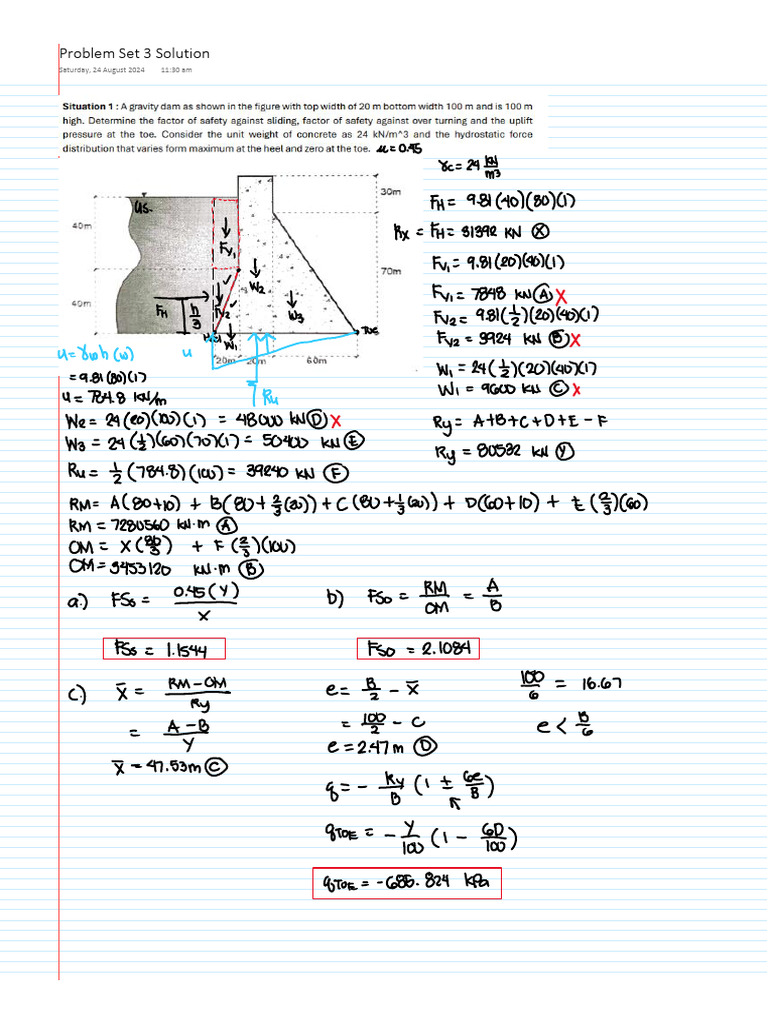 Problem Set 3 Solution
Saturday, 24 August 2024 11:30 am
Situation 1 : A gravity dam as shown in the figure with top width of 20 m bottom width 100 m and is 100 m
high. Determine the factor of safety against sliding, factor of safety against over turning and the uplift
pressure at the toe. Consider the unit weight of concrete as 24 kN/m^3 and the hydrostatic force
distribution that varies form maximum at the heel and zero at the toe. μ = 0.45
γc = 24 kN/m3
30m
70m
40m
40m
20m 20m 60m
US.
Fv1
Fv2
W2
W3
W1
FH
h/3
Heel
Toe
u
Ru
FH = 9.81(40)(80)(1)
Rx = FH = 31392 KN (X)
Fv1 = 9.81(20)(40)(1)
Fv1 = 7848 KN (A) X
Fv2 = 9.81(1/2)(20)(40)(1)
Fv2 = 3924 KN (B) X
W1 = 24(1/2)(20)(40)(1)
W1 = 9600 KN (C) X
Ry = A+B+C+D+E-F
Ry = 80532 KN (Y)
u = γwh(w)
= 9.81(80)(1)
u = 784.8 KN/m
W2 = 24(20)(100)(1) = 48000 KN (D) X
W3 = 24(1/2)(60)(70)(1) = 50400 KN (E)
Ru = 1/2(784.8)(100) = 39240 KN (F)
RM = A(80+10) + B(80+2/3(20)) + C(80+1/3(20)) + D(60+10) + E(2/3)(60)
RM = 7280560 KN·m (A)
OM = X(80/3) + F(2/3)(100)
OM = 3453120 KN·m (B)
a.) FSs = 0.45(Y)/X
FSs = 1.1544
b) FSo = RM/OM = A/B
FSo = 2.1084
c.) x̄ = RM-OM/Ry
= A-B/Y
x̄ = 47.53m (C)
e = B/2 - x̄
= 100/2 - C
e = 2.47m (D)
100/6 = 16.67
e < B/6
q = - Ry/B (1 ± 6e/B)
qTOE = - Y/100 (1 - 6D/100)
qTOE = -685.824 kPa